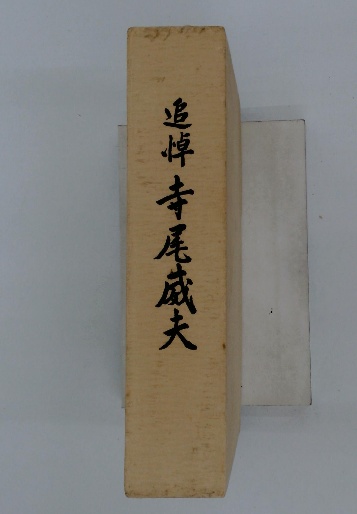 追悼 寺尾威夫